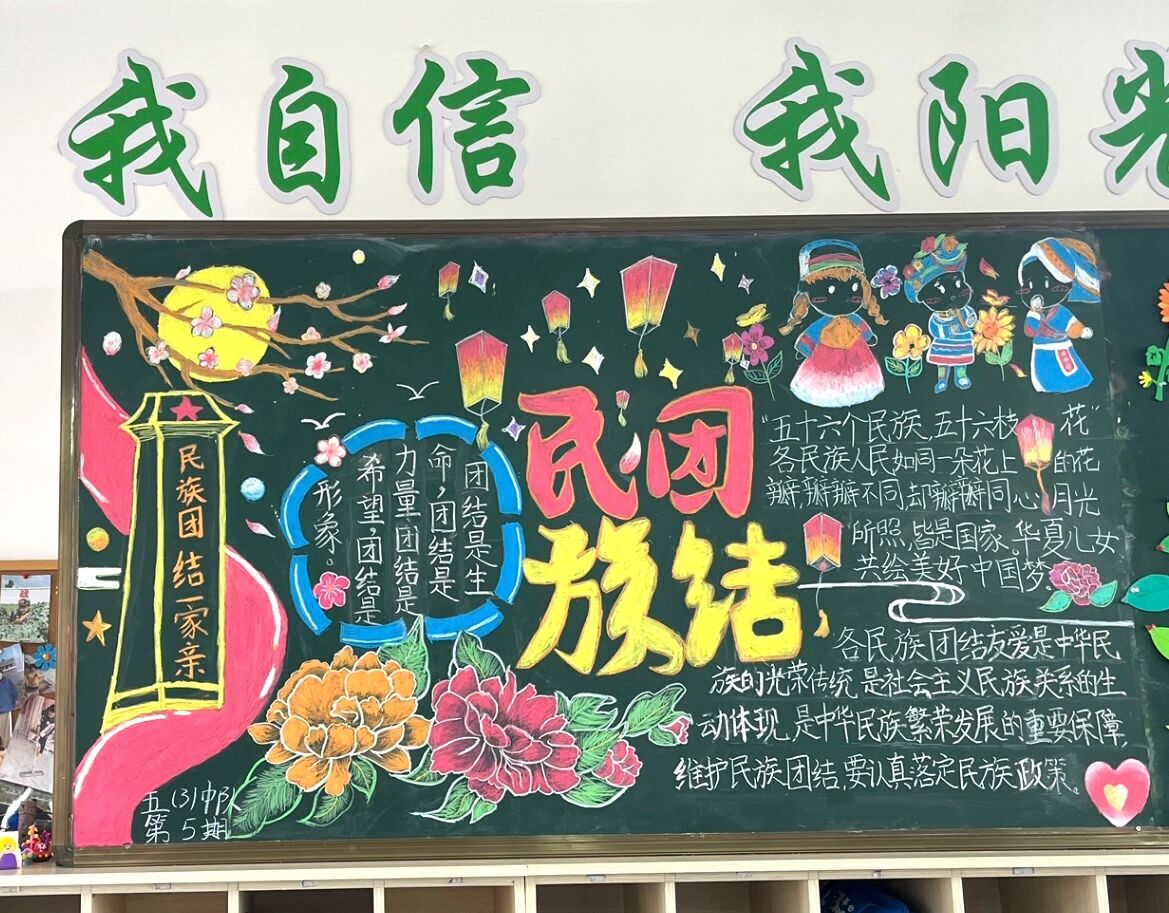 我自信 我阳光
民族团结
民族团结一家亲
团结是生
命，团结是
力量，团结是
希望，团结是
形象。
“五十六个民族，五十六枝花”
各民族人民如同一朵花上的花
瓣，瓣瓣不同，却瓣瓣同心，月光
所照，皆是国家。华夏儿女，
共绘美好中国梦
各民族团结友爱是中华民
族的光荣传统，是社会主义民族关系的生
动体现，是中华民族繁荣发展的重要保障，
维护民族团结，要认真落定民族政策。
五(3)中队
第5期